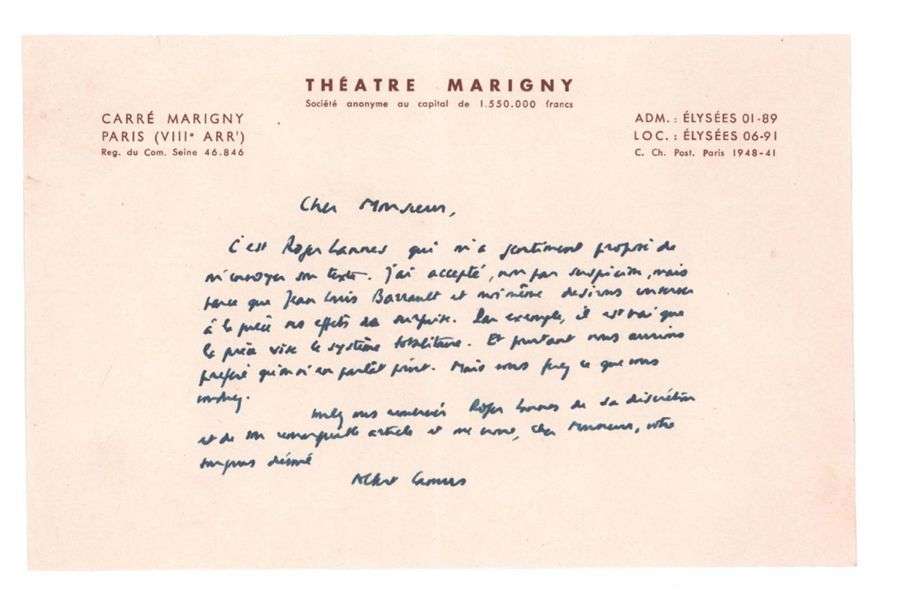 THÉATRE MARIGNY
Société anonyme au capital de 1.550.000 francs
CARRÉ MARIGNY
PARIS (VIIIᵉ ARRᵗ)
Reg. du Com. Seine 46.846
ADM. : ÉLYSÉES 01-89
LOC. : ÉLYSÉES 06-91
C. Ch. Post. Paris 1948-41
Cher Monsieur,
C'est Roger Lannes qui m'a gentiment proposé de
m'envoyer son texte. J'ai accepté, non par suspicion, mais
parce que Jean Louis Barrault et moi-même désirons conserver
à la pièce ses effets de surprise. Par exemple, il est vrai que
la pièce vise le système totalitaire. Et pourtant nous aurions
préféré qu'on n'en parlât point. Mais vous ferez ce que vous
voudrez.
Voulez-vous remercier Roger Lannes de sa discrétion
et de son remarquable article et me croire, cher Monsieur, votre
Albert Camus